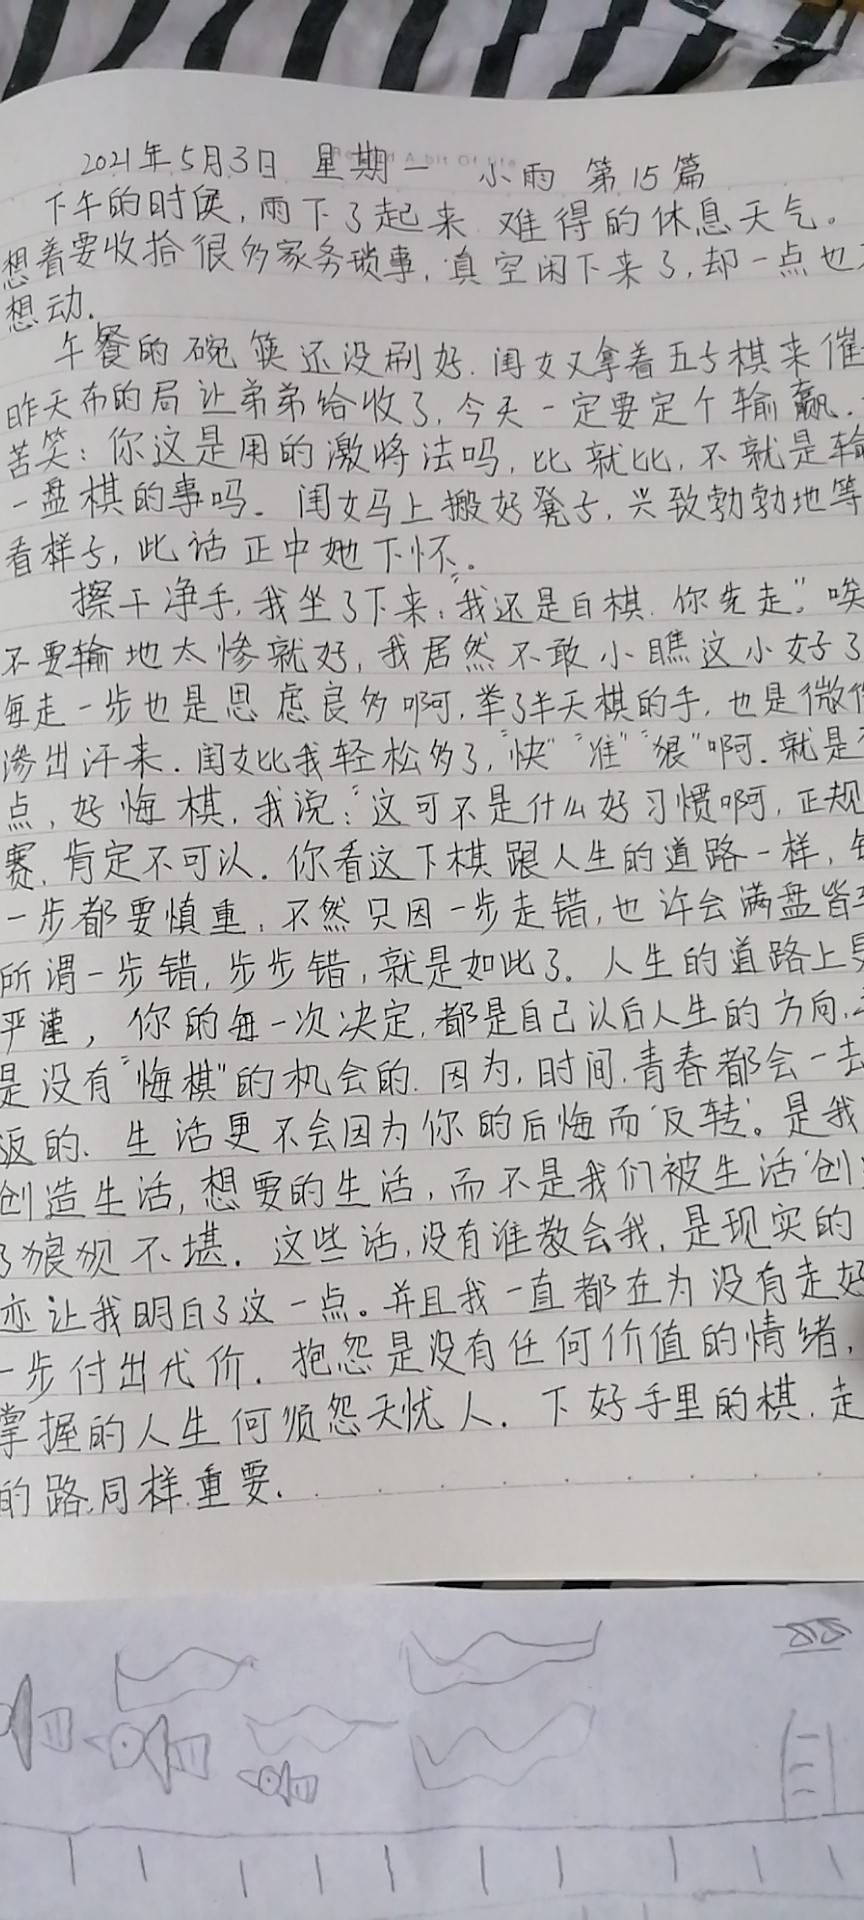 2021年5月3日 星期一 小雨 第15篇
下午的时候,雨下了起来 难得的休息天气。
想着要收拾很多家务琐事,真空闲下来了,却一点也
想动.
午餐的碗筷还没刷好.闺女又拿着五子棋来催
昨天布的局让弟弟给收了,今天一定要定个输赢.
苦笑:你这是用的激将法吗,比就比,不就是输
一盘棋的事吗.闺女马上搬好凳子,兴致勃勃地等
看样子,此话正中她下怀。
擦干净手,我坐了下来,"我还是白棋.你先走"。唉
不要输地太惨就好,我居然不敢小瞧这小好了
每走一步也是思虑良多啊,举了半天棋的手,也是微
渗出汗来.闺女比我轻松多了,"快""准""狠"啊.就是
点,好悔棋,我说:"这可不是什么好习惯啊,正规
赛,肯定不可以.你看这下棋跟人生的道路一样,
一步都要慎重,不然只因一步走错,也许会满盘皆
所谓一步错,步步错,就是如此了.人生的道路上
严谨,你的每一次决定,都是自己以后人生的方向.
是没有"悔棋"的机会的.因为,时间.青春都会一去
返的.生活更不会因为你的后悔而'反转'。是我
创造生活,想要的生活,而不是我们被生活'创
了狼狈不堪.这些话,没有谁教会我,是现实的
迹让我明白了这一点。并且我一直都在为没有走好
一步付出代价.抱怨是没有任何价值的情绪,
掌握的人生何须怨天忧人.下好手里的棋.走
的路,同样重要.